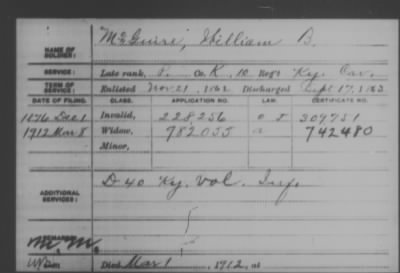 McGuire, William B.
NAME OF SOLDIER:
SERVICE: Late rank, P. Co. K, 10 Reg't Ky. Cav.
TERM OF SERVICE: Enlisted Nov. 21, 1862 Discharged Sept 17, 1863
DATE OF FILING. CLASS. APPLICATION NO. LAW. CERTIFICATE NO.
1876 Dec 1 Invalid, 228,256 309751
1912 Mar 8 Widow, 982055 742480
Minor,
ADDITIONAL SERVICES: D 40 Ky. Vol. Inf.
REMARKS:
Died Mar 1, 1912, at